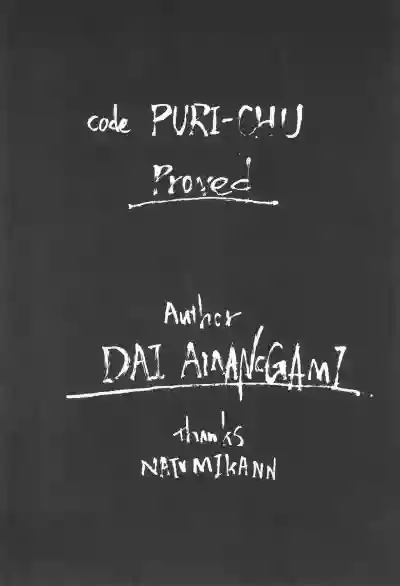 code PURI-CHU
Proved
Author
DAI
thanks
NATU MIKANN